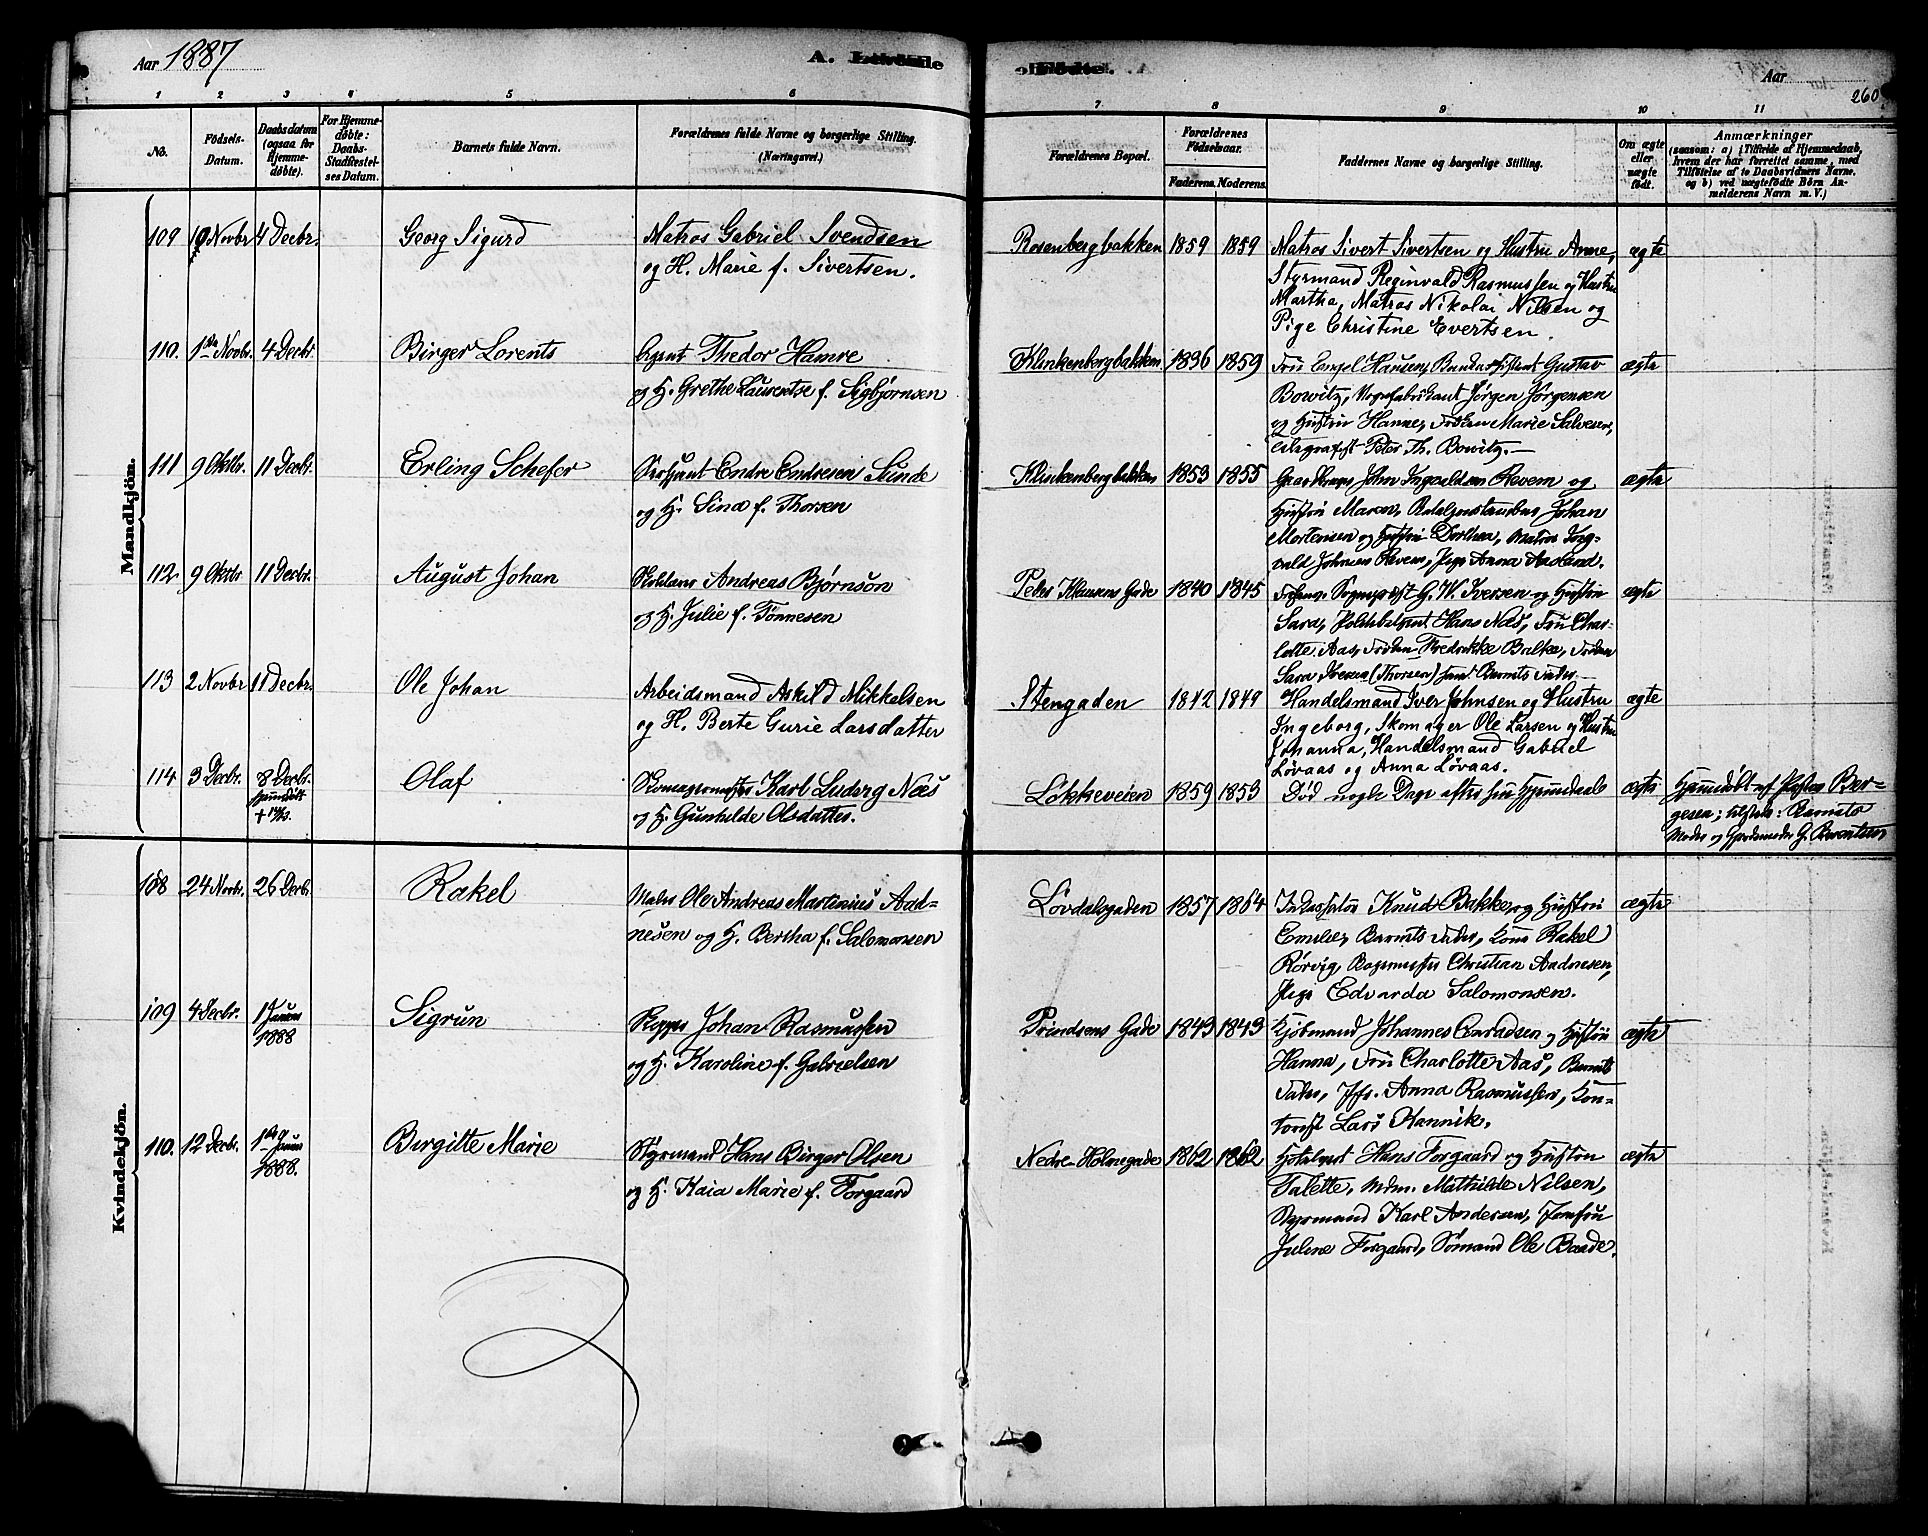 Aar 1887
A. Levende
Fødte.
Aar
260
1 2 3 4 5 6 7 8 9 10 11
No.
Fødsels-
Datum.
Daabsdatum
(ogsaa for
Hjemme-
døbte).
For Hjemme-
døbte:
Daabs-
Stadfæstel-
ses Datum.
Barnets fulde Navn.
Forældrenes fulde Navne og borgerlige Stilling.
(Næringsvei.)
Forældrenes Bopæl.
Forældrenes
Fødselsaar.
Faderens. Moderens.
Faddernes Navne og borgerlige Stilling.
Om ægte
eller
uægte
født.
Anmærkninger
(saasom: a) i Tilfælde af Hjemmedaab,
hvem der har forrettet samme, med
Tilføielse af to Daabsvidners Navne.
og b) ved uægtefødte Børn An-
melderens Navn m. V.)
Mandkjön.
109 10 Novbr 4 Decbr. Georg Sigurd Matros Gabriel Svendsen
og H. Marie f. Sivertsen.
Rosenbergbakken 1859 1859 Matros Sivert Sivertsen og Hustru Anne, ægte
Styrmand Reginvald Rasmussen og Hustru
Martha, Matros Nikolai Nilsen og
Pige Christine Evertsen.
110. 1ste Novbr. 4 Decbr. Birger Lorents Agent Thedor Hamre
og H. Grethe Laurentse f. Sigbjørnsen
Klinkenbergbakken 1836 1859 Fru Engel Hansen, Gustav ægte
Bowitz, Vognfabrikant Jørgen Jørgensen
og Hustru Hanne, Frøken Marie Salvesen,
Telegrafist Peter Th. Bowitz.
111 9 Oktbr. 11 Decbr. Erling Schefer Sersjant Endre Endresen Sunde
og H. Sina f. Thorsen
Klinkenbergbakken 1853 1855 John Ingvaldsen Revem og ægte
Hustru Maren, Johan
Mortensen og Hustru Dorthea, Matros Ing-
vald Johnsen Revem, Pige Anna Aasland.
112 9 Oktbr 11 Decbr. August Johan Andreas Bjørnson
og H. Julie f. Tønnesen
Peder Klausens Gade 1840 1845 Sogneprest G. W. Iversen og Hustru ægte
Sara, Politibetjent Hans Næs, Fru Char-
lotte Aas, Frøken Fredrikke Balke, Frøken
Sara Iversen (Thorsen) samt Barnets Fader.
113 2 Novbr 11 Decbr. Ole Johan Arbeidsmand Askild Mikkelsen
og H. Berte Gurie Larsdatter
Stengaden 1842 1849 Handelsmand Iver Johnsen og Hustru ægte
Ingeborg, Skomager Ole Larsen og Hustru
Johanna, Handelsmand Gabriel
Løvaas og Anna Løvaas.
114 3 Decbr. 8 Decbr. Olaf Skomagermester Karl Ludvig Næs
hjemdøbt
og H. Gunhilde Olsdatter.
Løkkeveien 1859 1853 Død nogle Dage efter sin Hjemmedaab ægte Hjemdøbt af Pastor Ber-
gesen; tilstede: Barnets
Moder og G. Berentsen
Kvindekjön.
108 24 Novbr. 26 Decbr. Rakel Maler Ole Andreas Martinius Aad-
nesen og H. Bertha f. Salomonsen
Løvdalsgaden 1857 1864 Inkassator Knud Bakke og Hustru ægte
Emilie, Barnets Fader, Kone Rakel
Rørvig, Bagermester Christian Aadnesen,
Pige Edvarda Salomonsen.
109 4 Decbr. 1 Januar Sigrun Skipper Johan Rasmussen
1888
og H. Karoline f. Gabrielsen
Prindsens Gade 1843 1843 Kjøbmand Johannes Conradsen og Hustru ægte
Hanna, Fru Charlotte Aas, Barnets
Fader, Jfr. Anna Rasmussen, Kon-
torist Lars Kannik.
110. 12 Decbr. 1ste Januar Birgitte Marie Styrmand Hans Birger Olsen
1888.
og H. Kaia Marie f. Forgaard
Nedre Holmegade 1862 1862 Hans Forgaard og Hustru ægte
Talette, Mdm. Mathilde Nilsen,
Styrmand Karl Andersen, Jomfru
Juline Forgaard, Sømand Ole Baade.